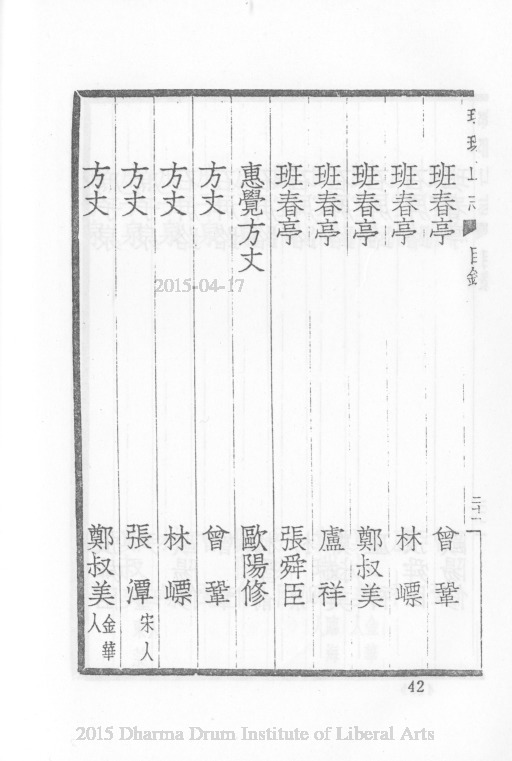 班春亭 曾鞏
班春亭 林嶛
班春亭 鄭叔美
班春亭 盧祥
班春亭 張舜臣
惠覺方丈 歐陽修
方丈 曾鞏
方丈 林嶛
方丈 張潭 宋人
方丈 鄭叔美 金華人
山志 目錄
42
2015-04-17
2015 Dharma Drum Institute of Liberal Arts